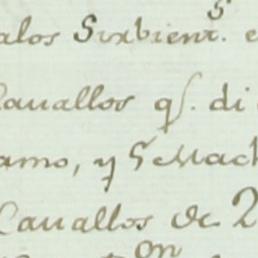 alos Sirbient.s
Cauallos q.e di
amo, y 5 Mach
Cauallos de 2